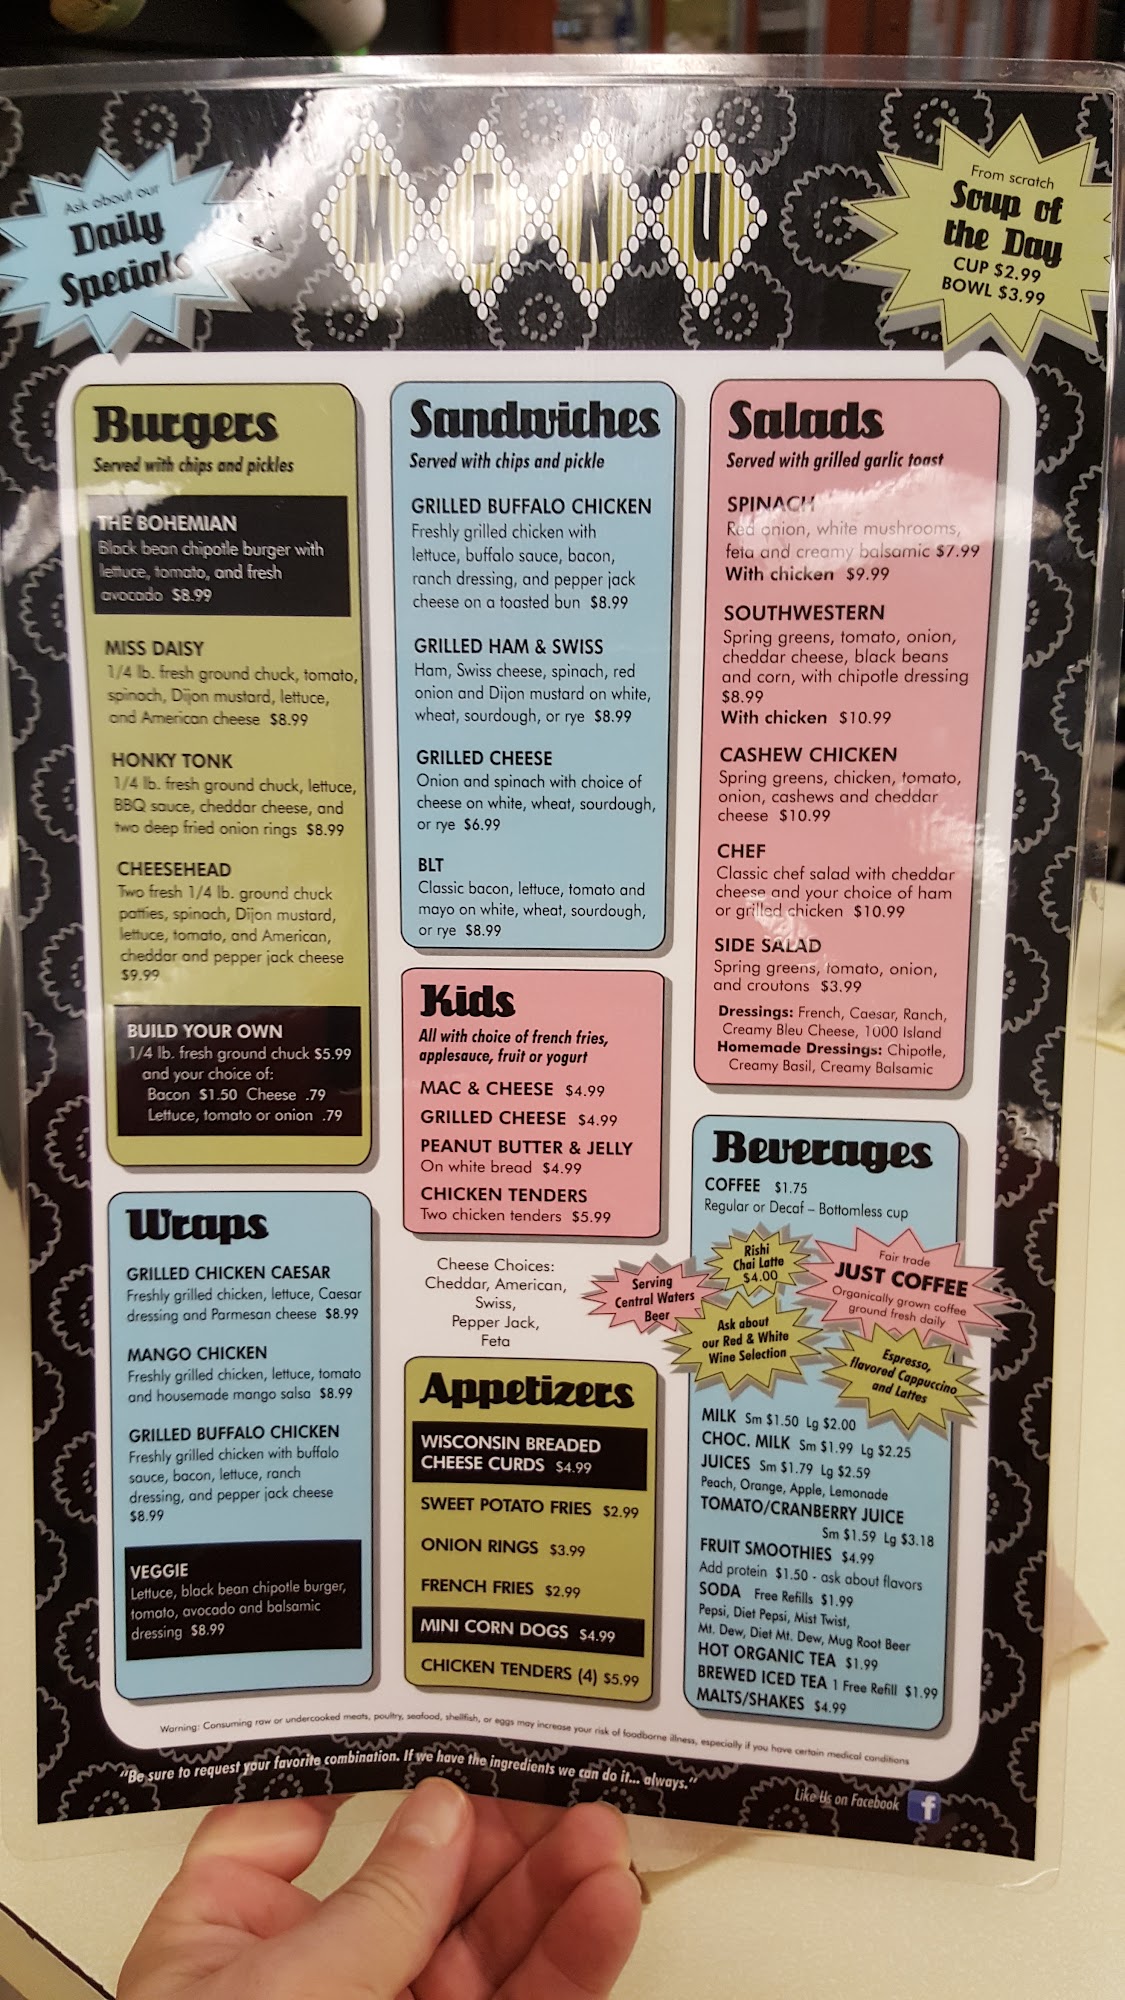 Ask about our
Daily
Specials
MENU
From scratch
Soup of
the Day
CUP $2.99
BOWL $3.99
Burgers
Served with chips and pickles
THE BOHEMIAN
Black bean chipotle burger with
lettuce, tomato, and fresh
avocado $8.99
MISS DAISY
1/4 lb. fresh ground chuck, tomato,
spinach, Dijon mustard, lettuce,
and American cheese $8.99
HONKY TONK
1/4 lb. fresh ground chuck, lettuce,
BBQ sauce, cheddar cheese, and
two deep fried onion rings $8.99
CHEESEHEAD
Two fresh 1/4 lb. ground chuck
patties, spinach, Dijon mustard,
lettuce, tomato, and American,
cheddar and pepper jack cheese
$9.99
BUILD YOUR OWN
1/4 lb. fresh ground chuck $5.99
and your choice of:
Bacon $1.50 Cheese .79
Lettuce, tomato or onion .79
Wraps
GRILLED CHICKEN CAESAR
Freshly grilled chicken, lettuce, Caesar
dressing and Parmesan cheese $8.99
MANGO CHICKEN
Freshly grilled chicken, lettuce, tomato
and housemade mango salsa $8.99
GRILLED BUFFALO CHICKEN
Freshly grilled chicken with buffalo
sauce, bacon, lettuce, ranch
dressing, and pepper jack cheese
$8.99
VEGGIE
Lettuce, black bean chipotle burger,
tomato, avocado and balsamic
dressing $8.99
Sandwiches
Served with chips and pickle
GRILLED BUFFALO CHICKEN
Freshly grilled chicken with
lettuce, buffalo sauce, bacon,
ranch dressing, and pepper jack
cheese on a toasted bun $8.99
GRILLED HAM & SWISS
Ham, Swiss cheese, spinach, red
onion and Dijon mustard on white,
wheat, sourdough, or rye $8.99
GRILLED CHEESE
Onion and spinach with choice of
cheese on white, wheat, sourdough,
or rye $6.99
BLT
Classic bacon, lettuce, tomato and
mayo on white, wheat, sourdough,
or rye $8.99
Kids
All with choice of french fries,
applesauce, fruit or yogurt
MAC & CHEESE $4.99
GRILLED CHEESE $4.99
PEANUT BUTTER & JELLY
On white bread $4.99
CHICKEN TENDERS
Two chicken tenders $5.99
Cheese Choices:
Cheddar, American,
Swiss,
Pepper Jack,
Feta
Appetizers
WISCONSIN BREADED
CHEESE CURDS $4.99
SWEET POTATO FRIES $2.99
ONION RINGS $3.99
FRENCH FRIES $2.99
MINI CORN DOGS $4.99
CHICKEN TENDERS (4) $5.99
Salads
Served with grilled garlic toast
SPINACH
Red onion, white mushrooms,
feta and creamy balsamic $7.99
With chicken $9.99
SOUTHWESTERN
Spring greens, tomato, onion,
cheddar cheese, black beans
and corn, with chipotle dressing
$8.99
With chicken $10.99
CASHEW CHICKEN
Spring greens, chicken, tomato,
onion, cashews and cheddar
cheese $10.99
CHEF
Classic chef salad with cheddar
cheese and your choice of ham
or grilled chicken $10.99
SIDE SALAD
Spring greens, tomato, onion,
and croutons $3.99
Dressings: French, Caesar, Ranch,
Creamy Bleu Cheese, 1000 Island
Homemade Dressings: Chipotle,
Creamy Basil, Creamy Balsamic
Beverages
COFFEE $1.75
Regular or Decaf – Bottomless cup
Serving
Central Waters
Beer
Rishi
Chai Latte
$4.00
Ask about
our Red & White
Wine Selection
Fair trade
JUST COFFEE
Organically grown coffee
ground fresh daily
Espresso,
flavored Cappuccino
and Lattes
MILK Sm $1.50 Lg $2.00
CHOC. MILK Sm $1.99 Lg $2.25
JUICES Sm $1.79 Lg $2.59
Peach, Orange, Apple, Lemonade
TOMATO/CRANBERRY JUICE
Sm $1.59 Lg $3.18
FRUIT SMOOTHIES $4.99
Add protein $1.50 - ask about flavors
SODA Free Refills $1.99
Pepsi, Diet Pepsi, Mist Twist,
Mt. Dew, Diet Mt. Dew, Mug Root Beer
HOT ORGANIC TEA $1.99
BREWED ICED TEA 1 Free Refill $1.99
MALTS/SHAKES $4.99
Warning: Consuming raw or undercooked meats, poultry, seafood, shellfish, or eggs may increase your risk of foodborne illness, especially if you have certain medical conditions
"Be sure to request your favorite combination. If we have the ingredients we can do it... always."
Like Us on Facebook f